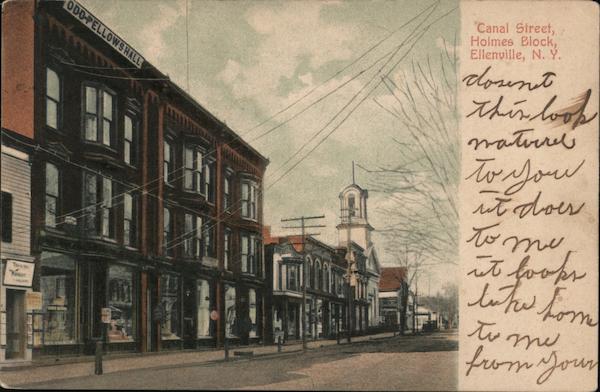 ODD-FELLOWS HALL
Canal Street,
Holmes Block,
Ellenville, N. Y.
dosent
this look
natural
to you
it does
to me
it looks
like home
to me
from your